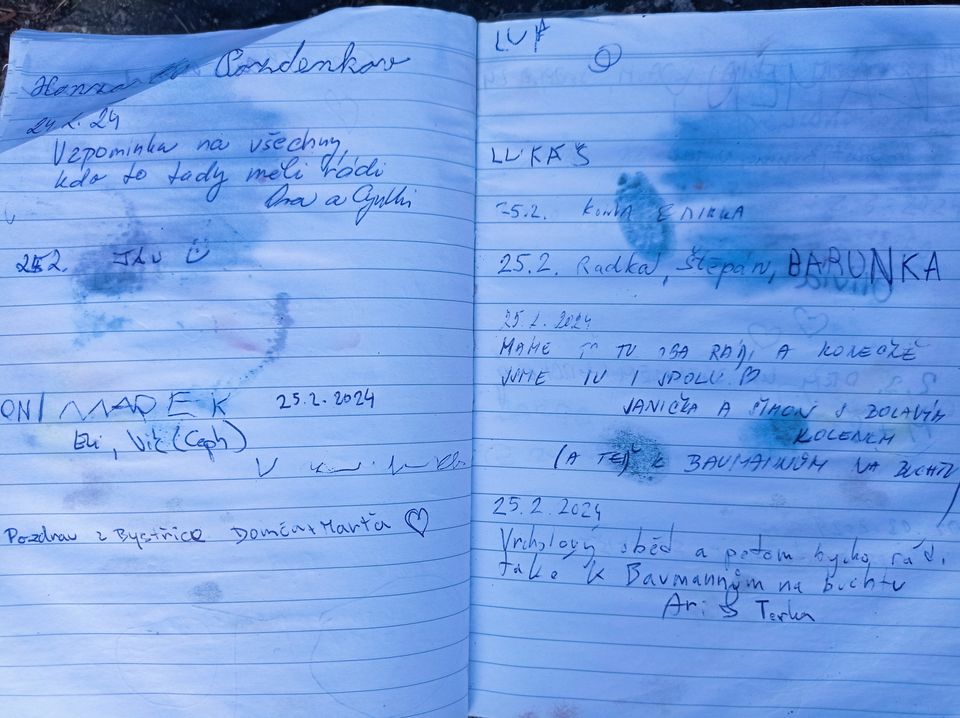 24.2.24
Vzpominka na všechny,
kdo to tady měli rádi
a
25.2.
ON/ MAREK 25.2.2024
Eli, Vič (Ceph)
Pozdrav z Bystřice Domča + Marťa ♡
LUK
LUKÁŠ
25.2.
25.2. Radka, Štěpán, BARUNKA
25.2.2024
MÁME TO TU OBA RÁDI A KONEČNĚ
JSME TU I SPOLU ♡
JANIČKA A ŠIMON S BOLAVÝM
KOLENEM
(A TEĎ K BAUMANNŮM NA BUCHTU)
25.2.2024
Vrcholový oběd a potom bycho rád.
také k Baumannům na buchtu
Ari & Terka